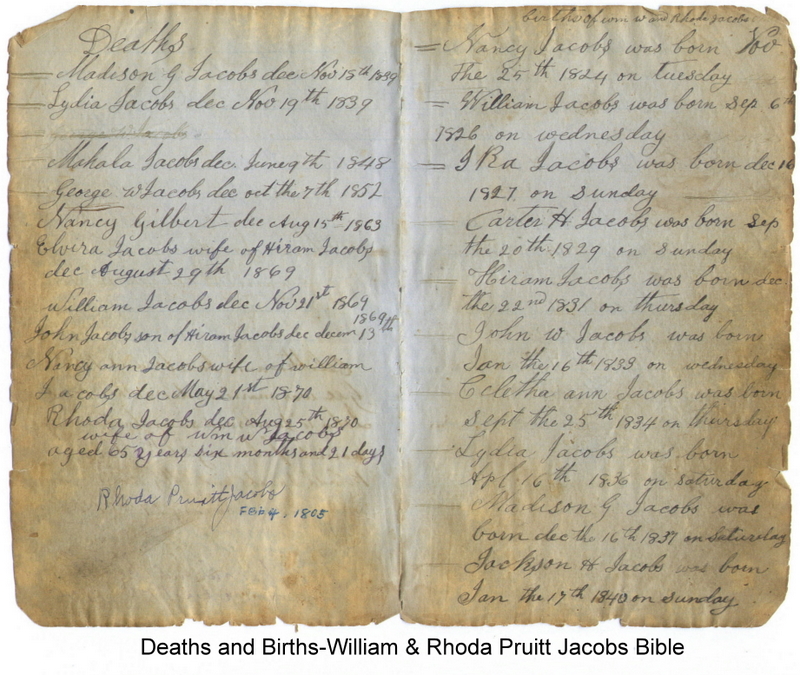 Deaths
Madison G Jacobs dec Nov 18th 1839
Lydia Jacobs dec Nov 19th 1839
Mahala Jacobs dec. June 9th 1848
George W Jacobs dec oct the 7th 1852
Nancy Gilbert dec Aug 15th 1863
Elvira Jacobs wife of Hiram Jacobs
dec August 29th 1869
William Jacobs dec Nov 21st 1869
1869
John Jacobs son of Hiram Jacobs dec decem 13th
Nancy ann Jacobs wife of william
Jacobs dec May 21st 1870
Rhoda Jacobs dec Aug 25th 1870
wife of wm w Jacobs
aged 65 years six months and 21 days
Rhoda Pruitt Jacobs
Feb 4, 1805
births of wm w and Rhoda Jacobs
Nancy Jacobs was born Nov
the 25th 1824 on tuesday
William Jacobs was born Sep 6th
1826 on wednesday
I Ra Jacobs was born dec 16
1827 on Sunday
Carter H Jacobs was born Sep
the 20th 1829 on Sunday
Hiram Jacobs was born dec.
the 22nd 1831 on thursday
John w Jacobs was born
Jan the 16th 1833 on wednesday
Ccletha ann Jacobs was born
Sept the 25th 1834 on thursday
Lydia Jacobs was born
Apl. 16th 1836 on saturday
Madison G Jacobs was
born dec the 16th 1837 on Saturday
Jackson H Jacobs was born
Jan the 17th 1840 on Sunday
Deaths and Births-William & Rhoda Pruitt Jacobs Bible